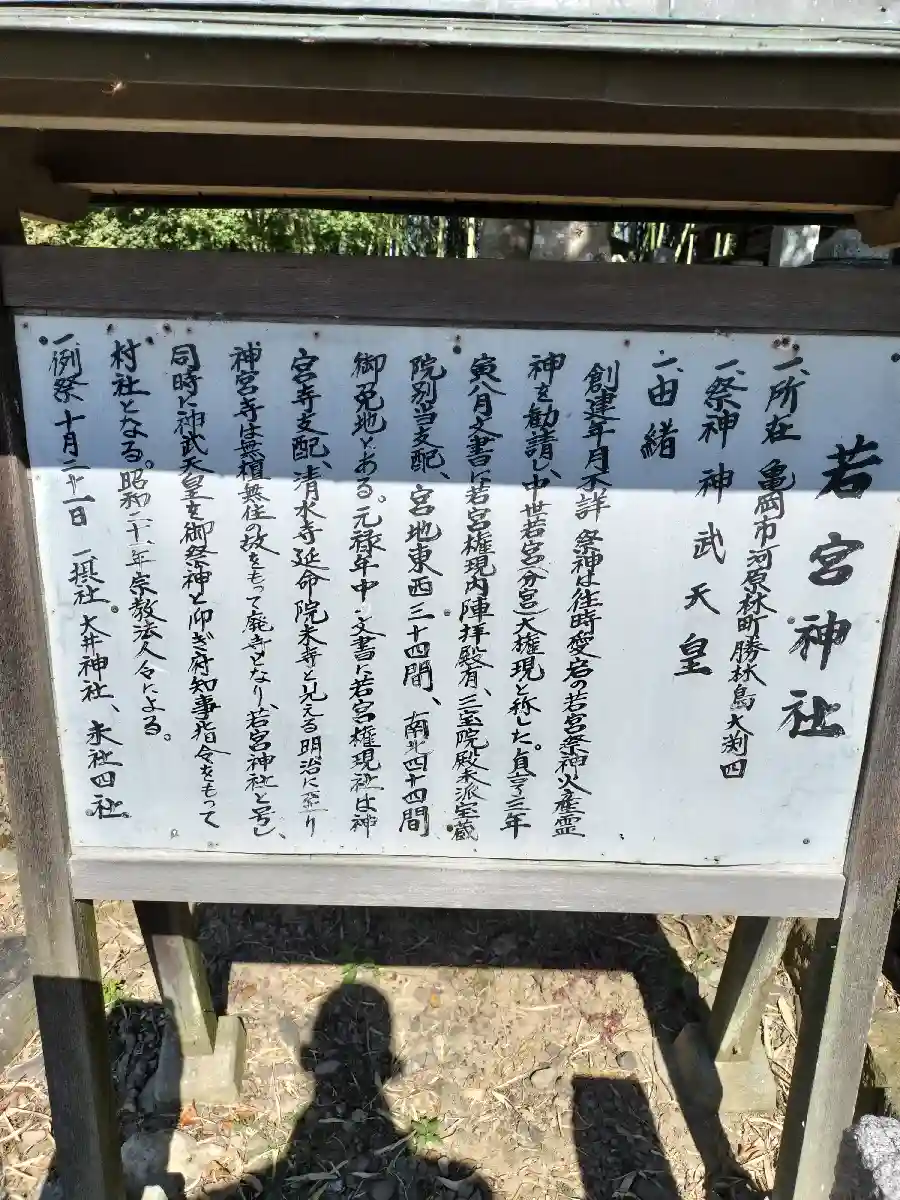 若宮神社
一、所在 亀岡市河原林町勝林島大渕四
一、祭神 神武天皇
一、由緒
創建年月不詳 祭神は往時愛宕の若宮祭神火産霊
神を勧請し、中世若宮(分宮)大権現と称した。貞享三年
寅八月文書に若宮権現内陣拝殿有、三宝院殿末派宝蔵
院別当支配、宮地東西三十四間、南北四十四間
御免地とある。元禄年中ノ文書に若宮権現社は神
宮寺支配、清水寺延命院末寺と見える明治に至り
神宮寺は無檀無住の故をもって廃寺となり、若宮神社と号し、
同時に神武天皇を御祭神と仰ぎ府知事指令をもって
村社となる。昭和二十一年宗教法人令による。
一、例祭 十月二十一日 一、摂社 大井神社、末社四社